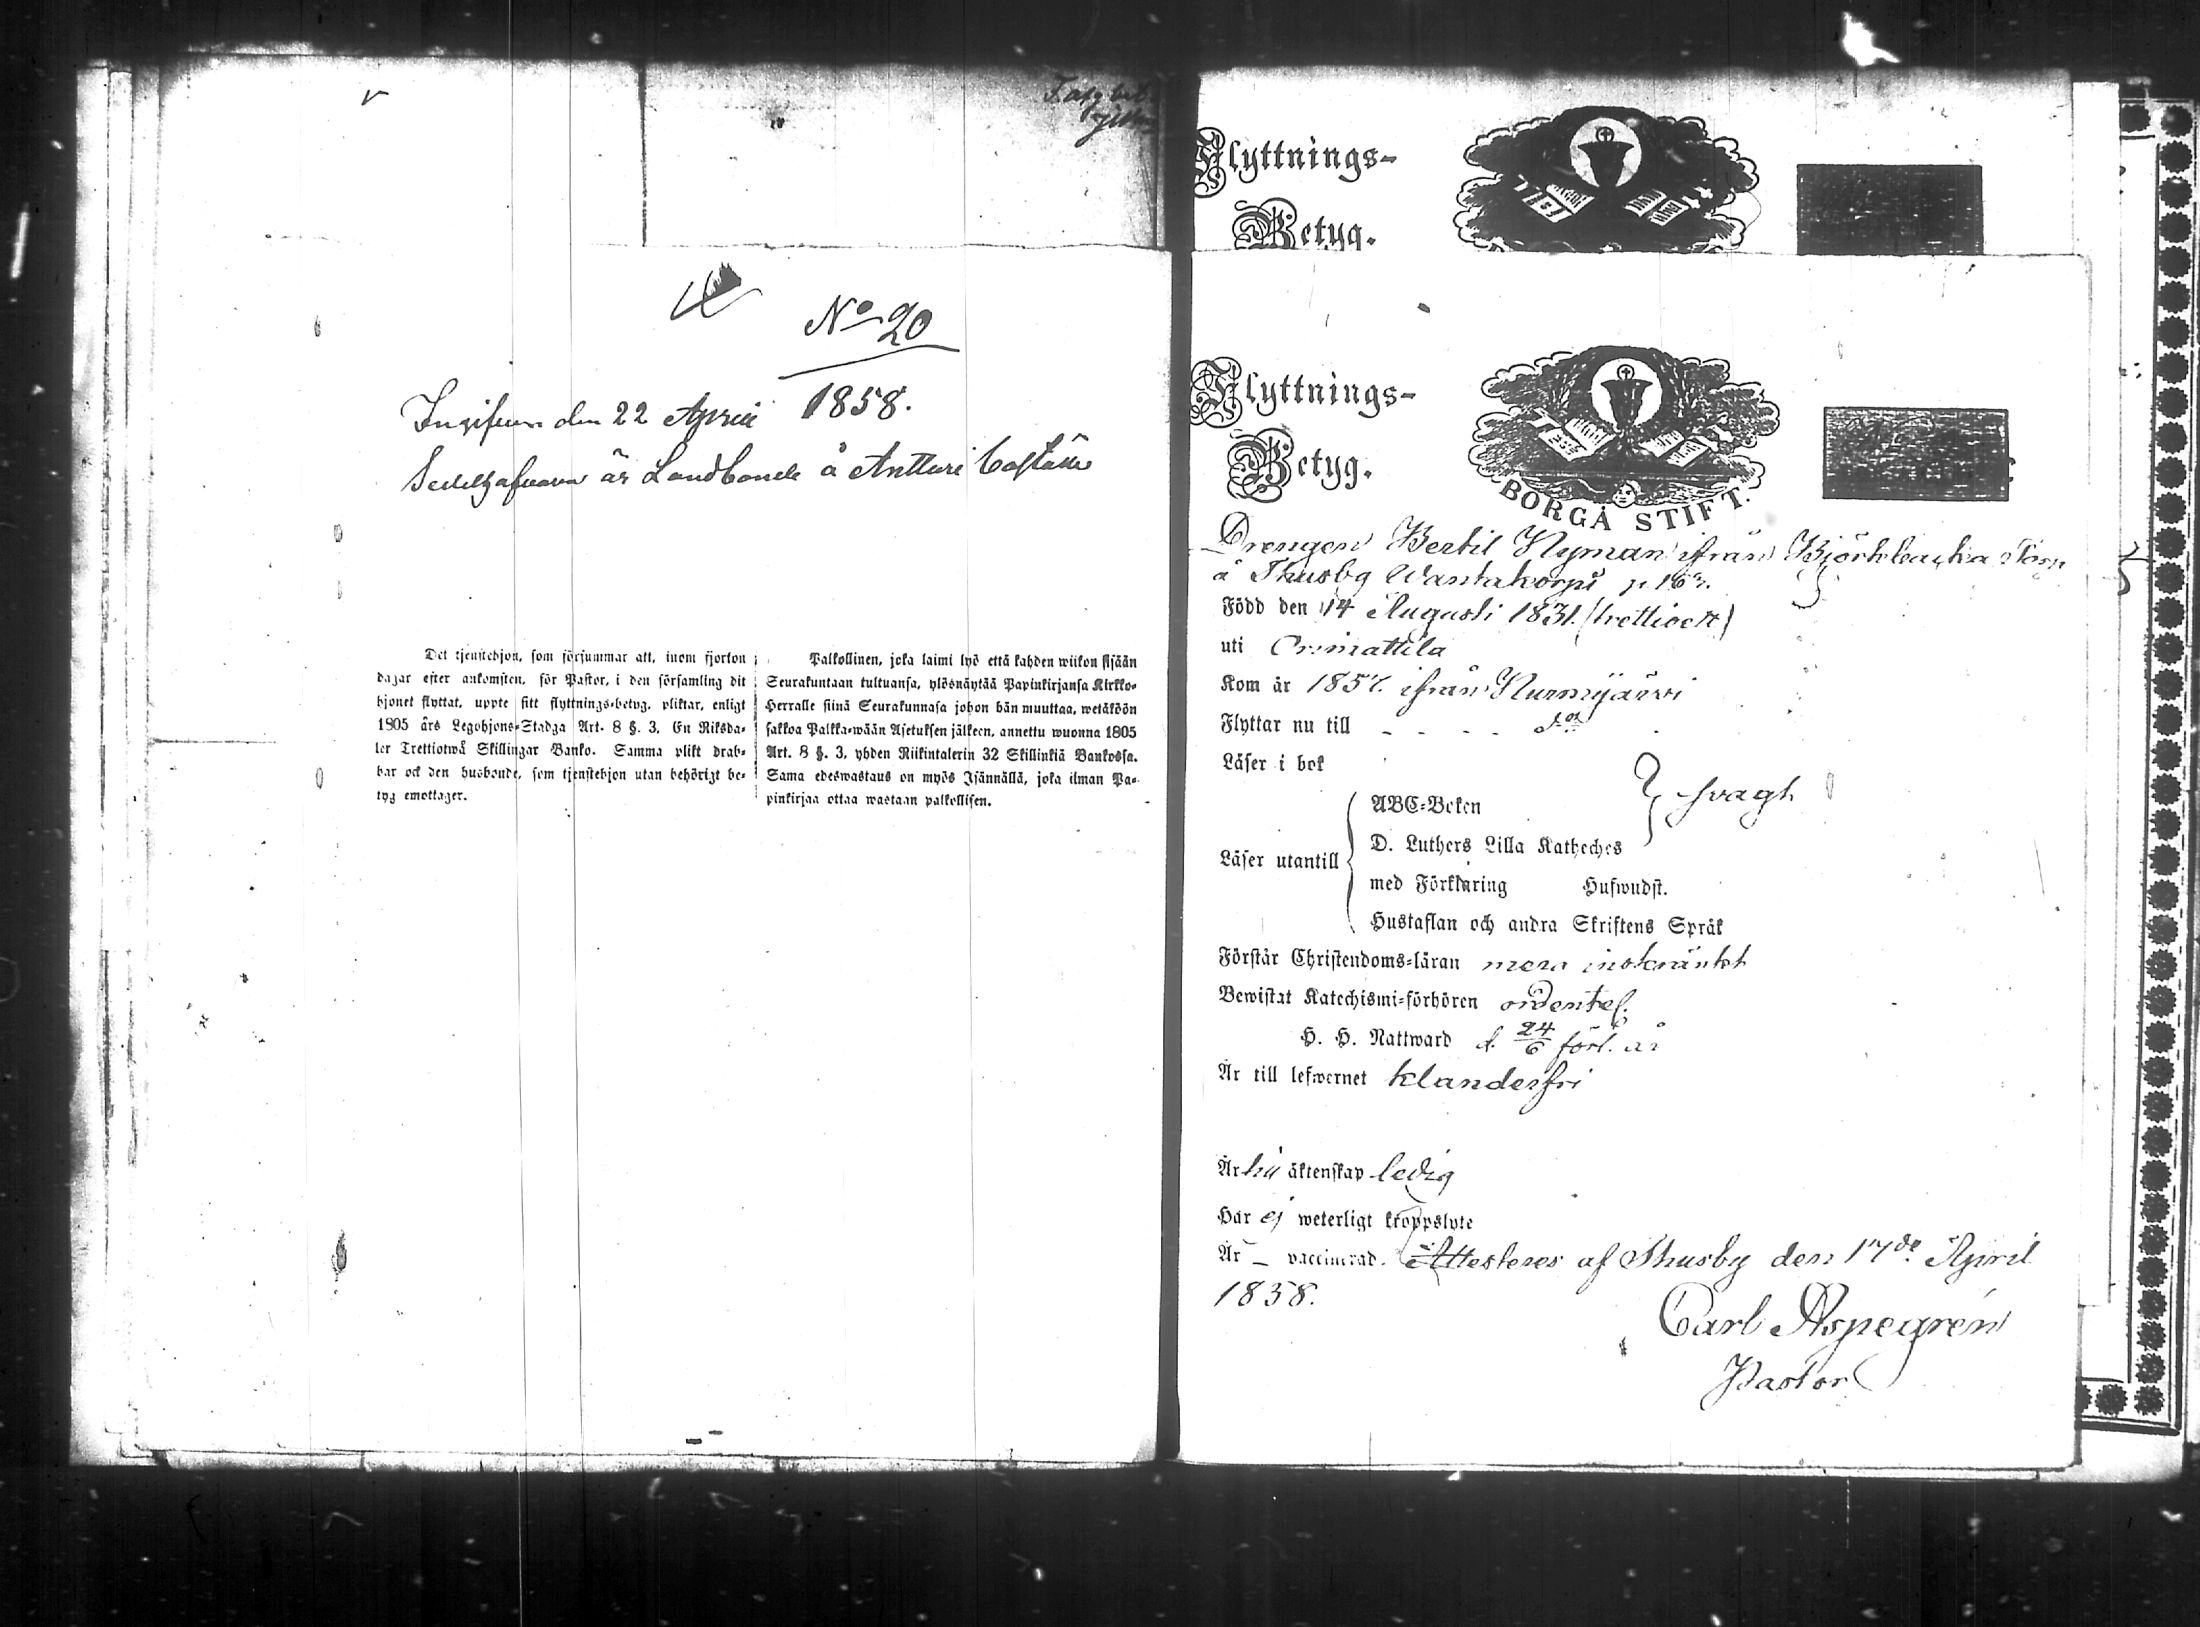 No 20
Ingifven den 22 April 1858.
Sedelhafvaren är Landbonde å Anttari
Det tjenstehjon, som försummar att, inom fjorton
dagar efter ankomsten, för Pastor, i den församling dit
hjonet flyttat, uppte sitt flyttnings-betyg, pliktar, enligt
1805 års Legohjons-Stadga Art. 8 §. 3, En Riksda-
ler Trettiotwå Skillingar Banko. Samma plikt drab-
bar ock den husbonde, som tjenstehjon utan behörigt be-
tyg emottager.
Palkollinen, joka laimi lyö että kahden wiikon sisään
Seurakuntaan tultuansa, ylösnäytää Papinkirjansa Kirkko-
Herralle siinä Seurakunnasa johon hän muuttaa, wetäköön
sakkoa Palkka-wään Asetuksen jälkeen, annettu wuonna 1805
Art. 8 §. 3, yhden Riikintalerin 32 Skillinkiä Bankossa.
Sama edeswastaus on myös Isännällä, joka ilman Pa-
pinkirjaa ottaa wastaan palkollisen.
Flyttnings-
Betyg.
Flyttnings-
Betyg.
BORGÅ STIFT.
Drengen Bertil Nyman ifrån Björkbacka Torp
å Thusby Wantakorpi p 163.
Född den 14 Augusti 1831. (trettioett)
uti Orimattila
Kom år 1857. ifrån Nurmijärvi
Flyttar nu till - - - - do
Läser i bok
Läser utantill
ABC-Boken
D. Luthers Lilla Katheches
svagt
med Förklaring Hufwudst.
Hustaflan och andra Skriftens Språk
Förstår Christendoms-läran mera inskränkt
Bewistat Katechismi-förhören ordentel.
H. H. Nattward d. 24/6 förl. år
Är till lefwernet klanderfri
Är till äktenskap ledig
Har ej weterligt kroppslyte
Är - vaccinerad. Attesteras af Thusby den 17de April
1858.
Carl Aspegrén
Pastor